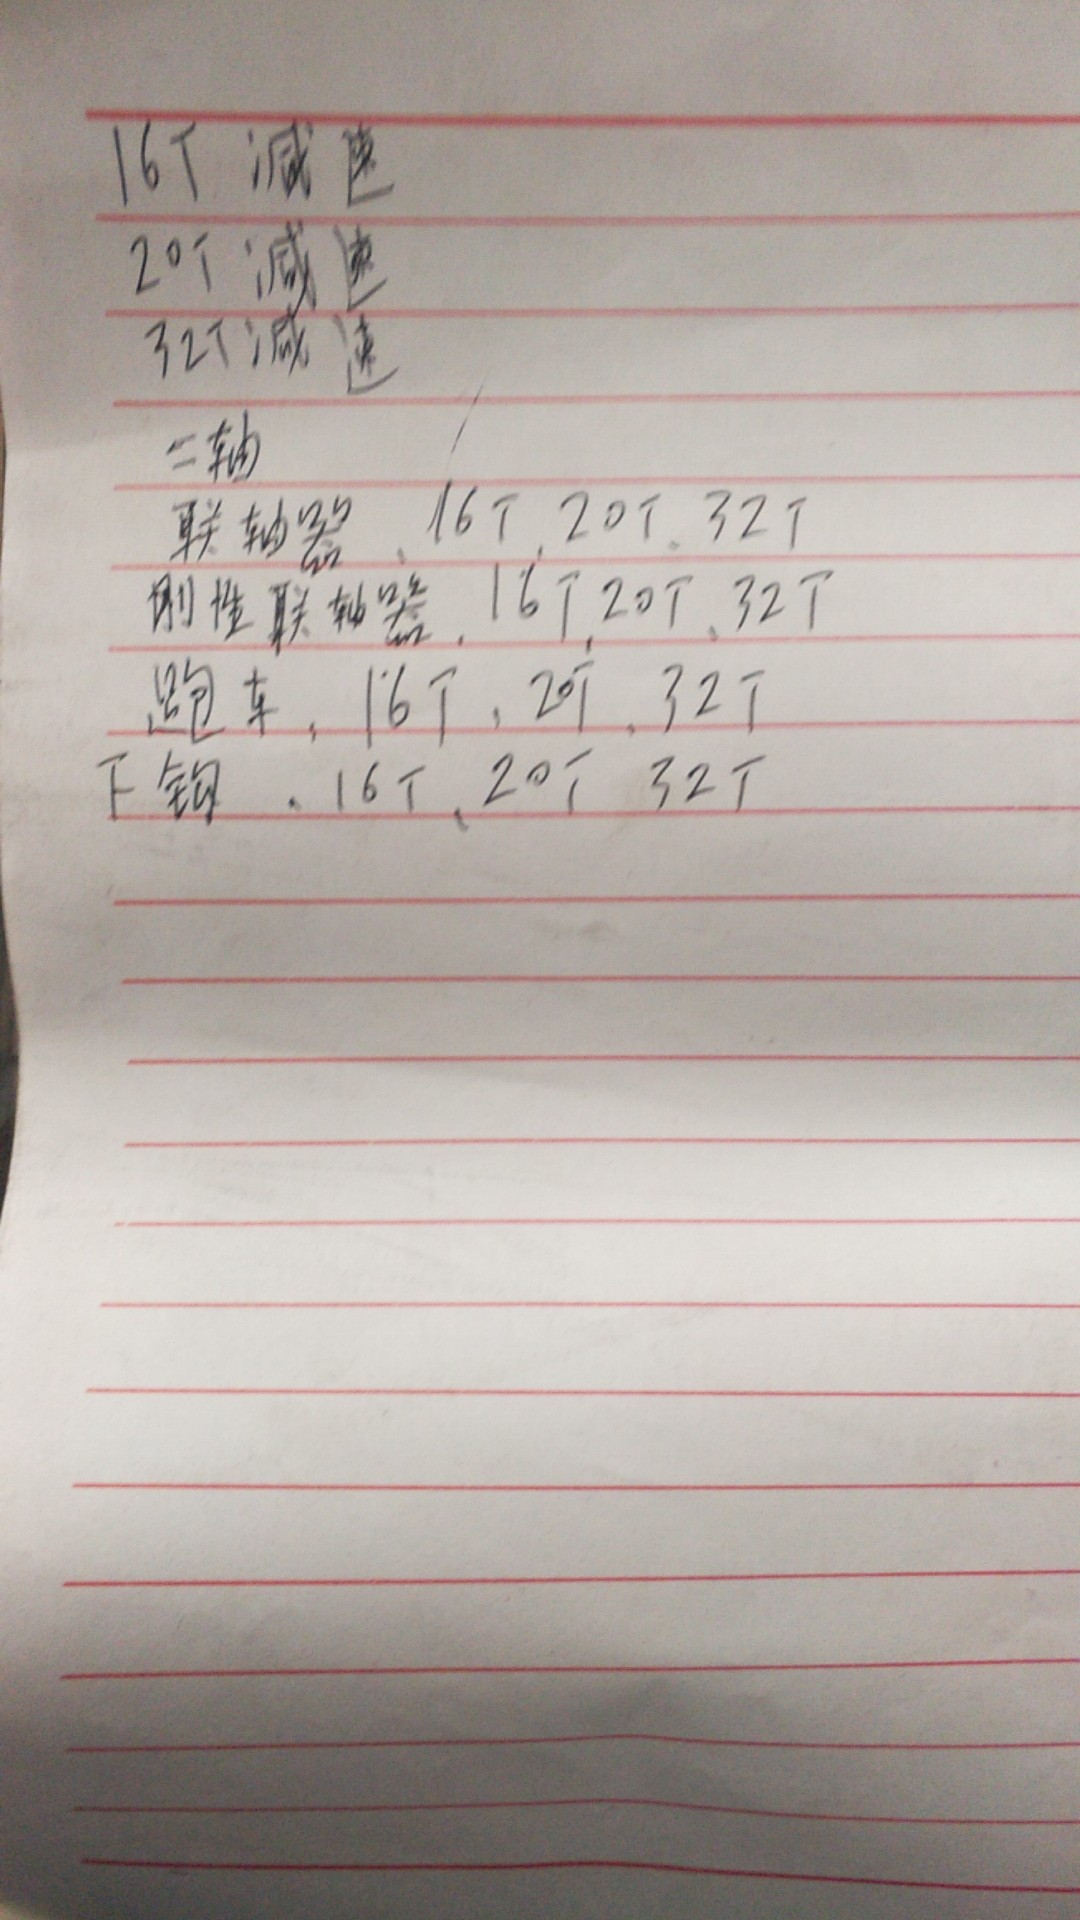 16T 减速
20T 减速
32T 减速
二轴
联轴器、16T、20T、32T
刚性联轴器、16T、20T、32T
跑车、16T、20T、32T
下钩、16T、20T 32T